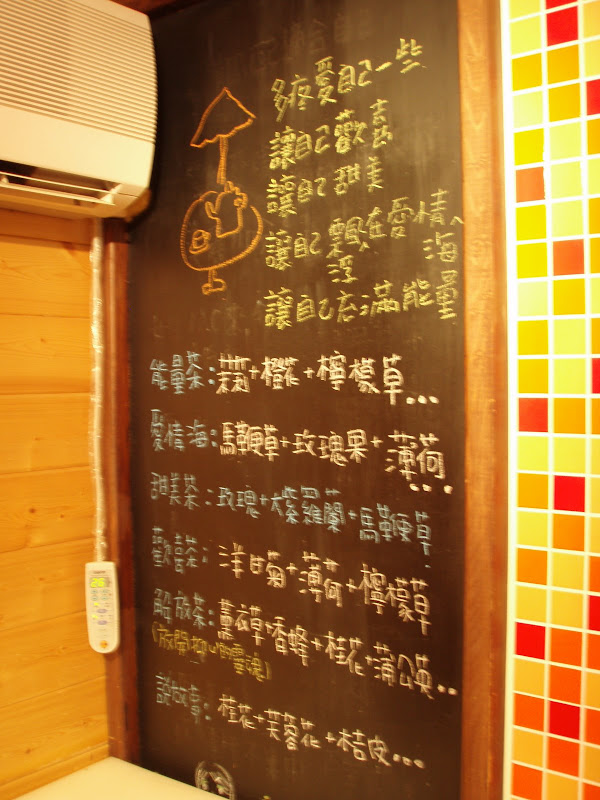 多疼愛自己一些
讓自己歡喜
讓自己甜美
讓自己飄浮在愛情海
讓自己充滿能量
能量茶:茉莉+橙花+檸檬草...
愛情海:馬鞭草+玫瑰果+薄荷...
甜美茶:玫瑰+紫羅蘭+馬鞭草
歡喜茶:洋甘菊+薄荷+檸檬草
解放茶:薰衣草+香蜂+桂花+蒲公英..
(放開抑心的靈魂)
說故事:桂花+芙蓉花+桔皮...